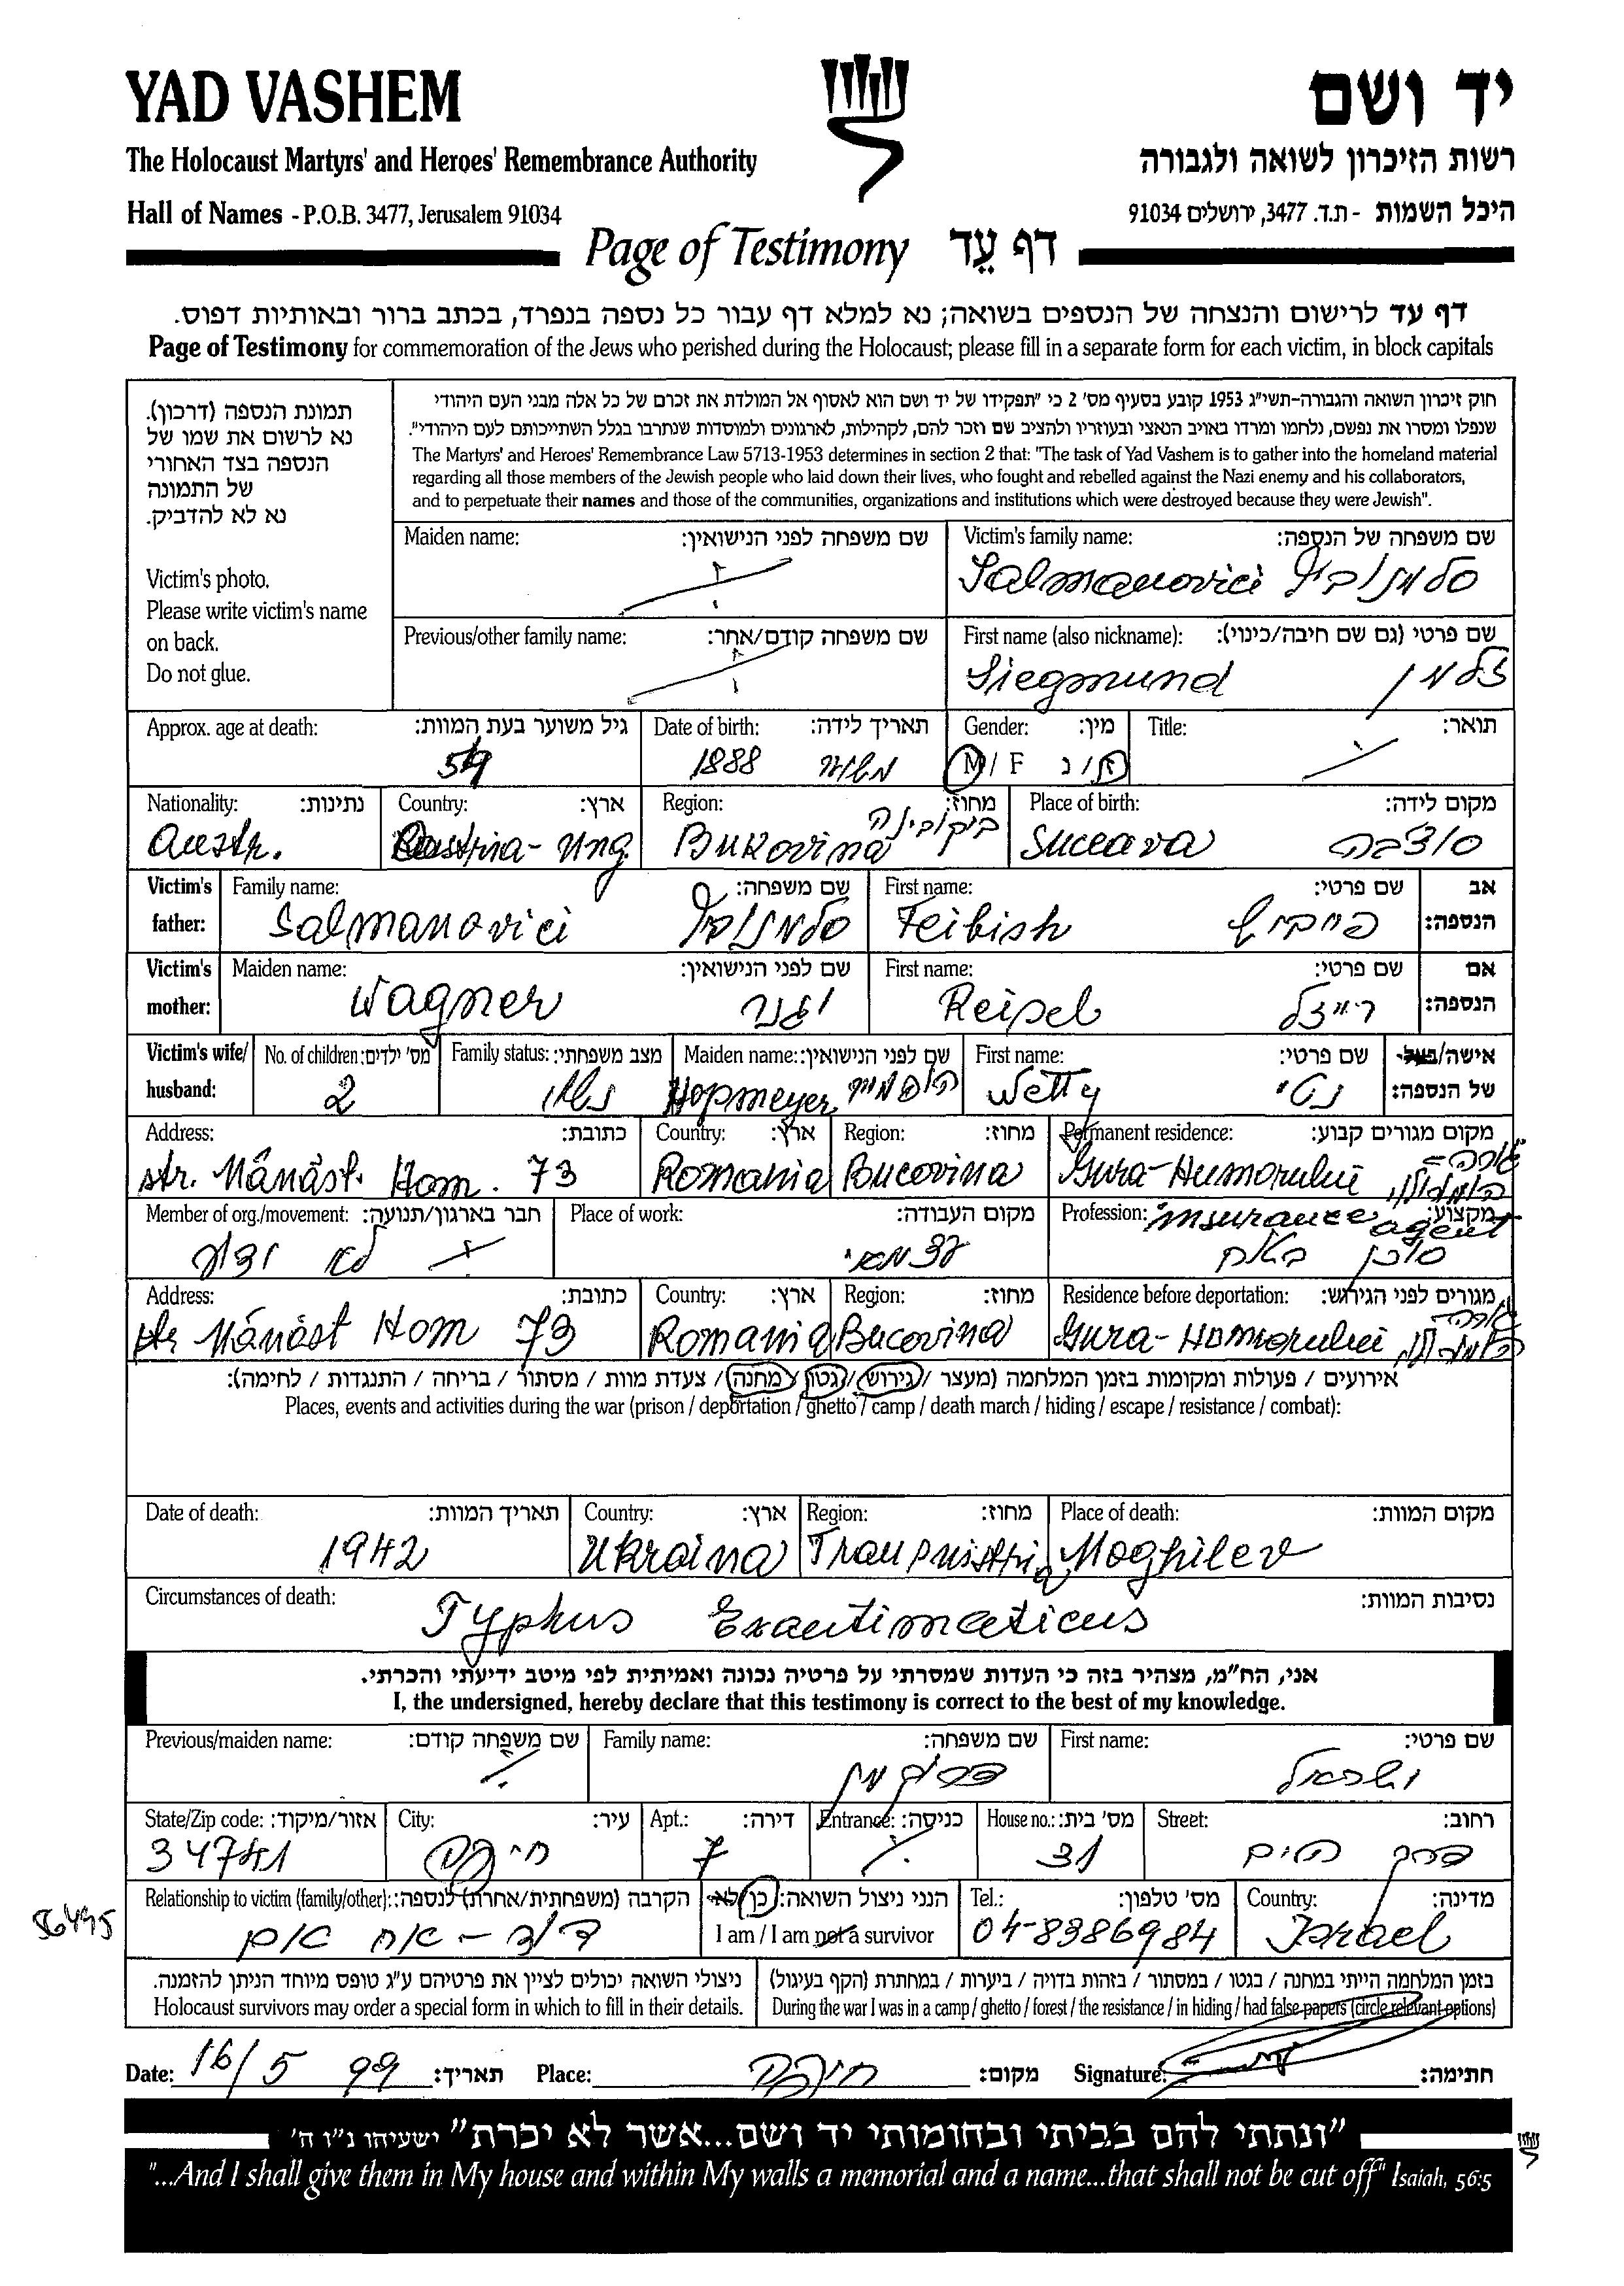 YAD VASHEM
יד ושם
The Holocaust Martyrs' and Heroes' Remembrance Authority
רשות הזיכרון לשואה ולגבורה
Hall of Names - P.O.B. 3477, Jerusalem 91034
היכל השמות - ת.ד. 3477, ירושלים 91034
Page of Testimony דף עֵד
דף עד לרישום והנצחה של הנספים בשואה; נא למלא דף עבור כל נספה בנפרד, בכתב ברור ובאותיות דפוס.
Page of Testimony for commemoration of the Jews who perished during the Holocaust; please fill in a separate form for each victim, in block capitals
תמונת הנספה (דרכון).
נא לרשום את שמו של
הנספה בצד האחורי
של התמונה
נא לא להדביק.
Victim's photo.
Please write victim's name
on back.
Do not glue.
חוק זיכרון השואה והגבורה-תשי"ג 1953 קובע בסעיף מס' 2 כי "תפקידו של יד ושם הוא לאסוף אל המולדת את זכרם של כל אלה מבני העם היהודי
שנפלו ומסרו את נפשם, נלחמו ומרדו באויב הנאצי ובעוזריו ולהציב שם וזכר להם, לקהילות, לארגונים ולמוסדות שנחרבו בגלל השתייכותם לעם היהודי".
The Martyrs' and Heroes' Remembrance Law 5713-1953 determines in section 2 that: "The task of Yad Vashem is to gather into the homeland material
regarding all those members of the Jewish people who laid down their lives, who fought and rebelled against the Nazi enemy and his collaborators,
and to perpetuate their names and those of the communities, organizations and institutions which were destroyed because they were Jewish".
Maiden name: שם משפחה לפני הנישואין:
Victim's family name: שם משפחה של הנספה:
Salmanovici סלמנוביץ
Previous/other family name: שם משפחה קודם/אחר:
First name (also nickname): שם פרטי (גם שם חיבה/כינוי):
Siegmund זלמן
Approx. age at death: גיל משוער בעת המוות:
54
Date of birth: תאריך לידה:
1888 משוער
Gender: מין:
M / F ז / נ
Title: תואר:
Nationality: נתינות:
Austr.
Country: ארץ:
Austria-Ung.
Region: מחוז:
Bukovina בוקובינה
Place of birth: מקום לידה:
Suceava סוצ'בה
Victim's father: Family name: שם משפחה:
Salmanovici סלמנוביץ
First name: שם פרטי: אב הנספה:
Feibish פייביש
Victim's mother: Maiden name: שם לפני הנישואין:
Wagner וגנר
First name: שם פרטי: אם הנספה:
Reisel רייזל
Victim's wife/ husband: No. of children: מס' ילדים:
2
Family status: מצב משפחתי:
נשוי
Maiden name: שם לפני הנישואין:
Hopmeyer הופמייר
First name: שם פרטי: אישה/בעל של הנספה:
Netty נטי
Address: כתובת:
str. Mănăst. Hom. 73
Country: ארץ:
Romania
Region: מחוז:
Bucovina
Permanent residence: מקום מגורים קבוע:
Gura-Humorului גורה-הומורולוי
Member of org./movement: חבר בארגון/תנועה:
לא ידוע
Place of work: מקום העבודה:
עצמאי
Profession: מקצוע:
insurance agent
סוכן באט
Address: כתובת:
str Mănăst Hom 73
Country: ארץ:
Romania
Region: מחוז:
Bucovina
Residence before deportation: מגורים לפני הגירוש:
Gura-Homorului גורה הומורולוי
אירועים / פעולות ומקומות בזמן המלחמה (מעצר / גירוש / גטו / מחנה / צעדת מוות / מסתור / בריחה / התנגדות / לחימה):
Places, events and activities during the war (prison / deportation / ghetto / camp / death march / hiding / escape / resistance / combat):
Date of death: תאריך המוות:
1942
Country: ארץ:
Ukraina
Region: מחוז:
Transnistria
Place of death: מקום המוות:
Moghilev
Circumstances of death: נסיבות המוות:
Typhus Exantimaticus
אני, הח"מ, מצהיר בזה כי העדות שמסרתי על פרטיה נכונה ואמיתית לפי מיטב ידיעתי והכרתי.
I, the undersigned, hereby declare that this testimony is correct to the best of my knowledge.
Previous/maiden name: שם משפחה קודם:
Family name: שם משפחה:
First name: שם פרטי:
ישראל
State/Zip code: אזור/מיקוד:
34741
City: עיר:
חיפה
Apt.: דירה:
7
Entrance: כניסה:
House no.: מס' בית:
31
Street: רחוב:
דרך הים
Relationship to victim (family/other): הקרבה (משפחתית/אחרת) לנספה:
דוד - אח אם
הנני ניצול השואה: כן / לא
I am / I am not a survivor
Tel.: מס' טלפון:
04-8386984
Country: מדינה:
Israel
56495
ניצולי השואה יכולים לציין את פרטיהם ע"ג טופס מיוחד הניתן להזמנה.
Holocaust survivors may order a special form in which to fill in their details.
בזמן המלחמה הייתי במחנה / בגטו / במסתור / בזהות בדויה / ביערות / במחתרת (הקף בעיגול)
During the war I was in a camp / ghetto / forest / the resistance / in hiding / had false papers (circle relevant options)
Date: 16/5 99 תאריך: Place: חיפה מקום: Signature: חתימה:
"ונתתי להם בביתי ובחומותי יד ושם...אשר לא יכרת" ישעיהו נ"ו ה'
"...And I shall give them in My house and within My walls a memorial and a name...that shall not be cut off" Isaiah, 56:5